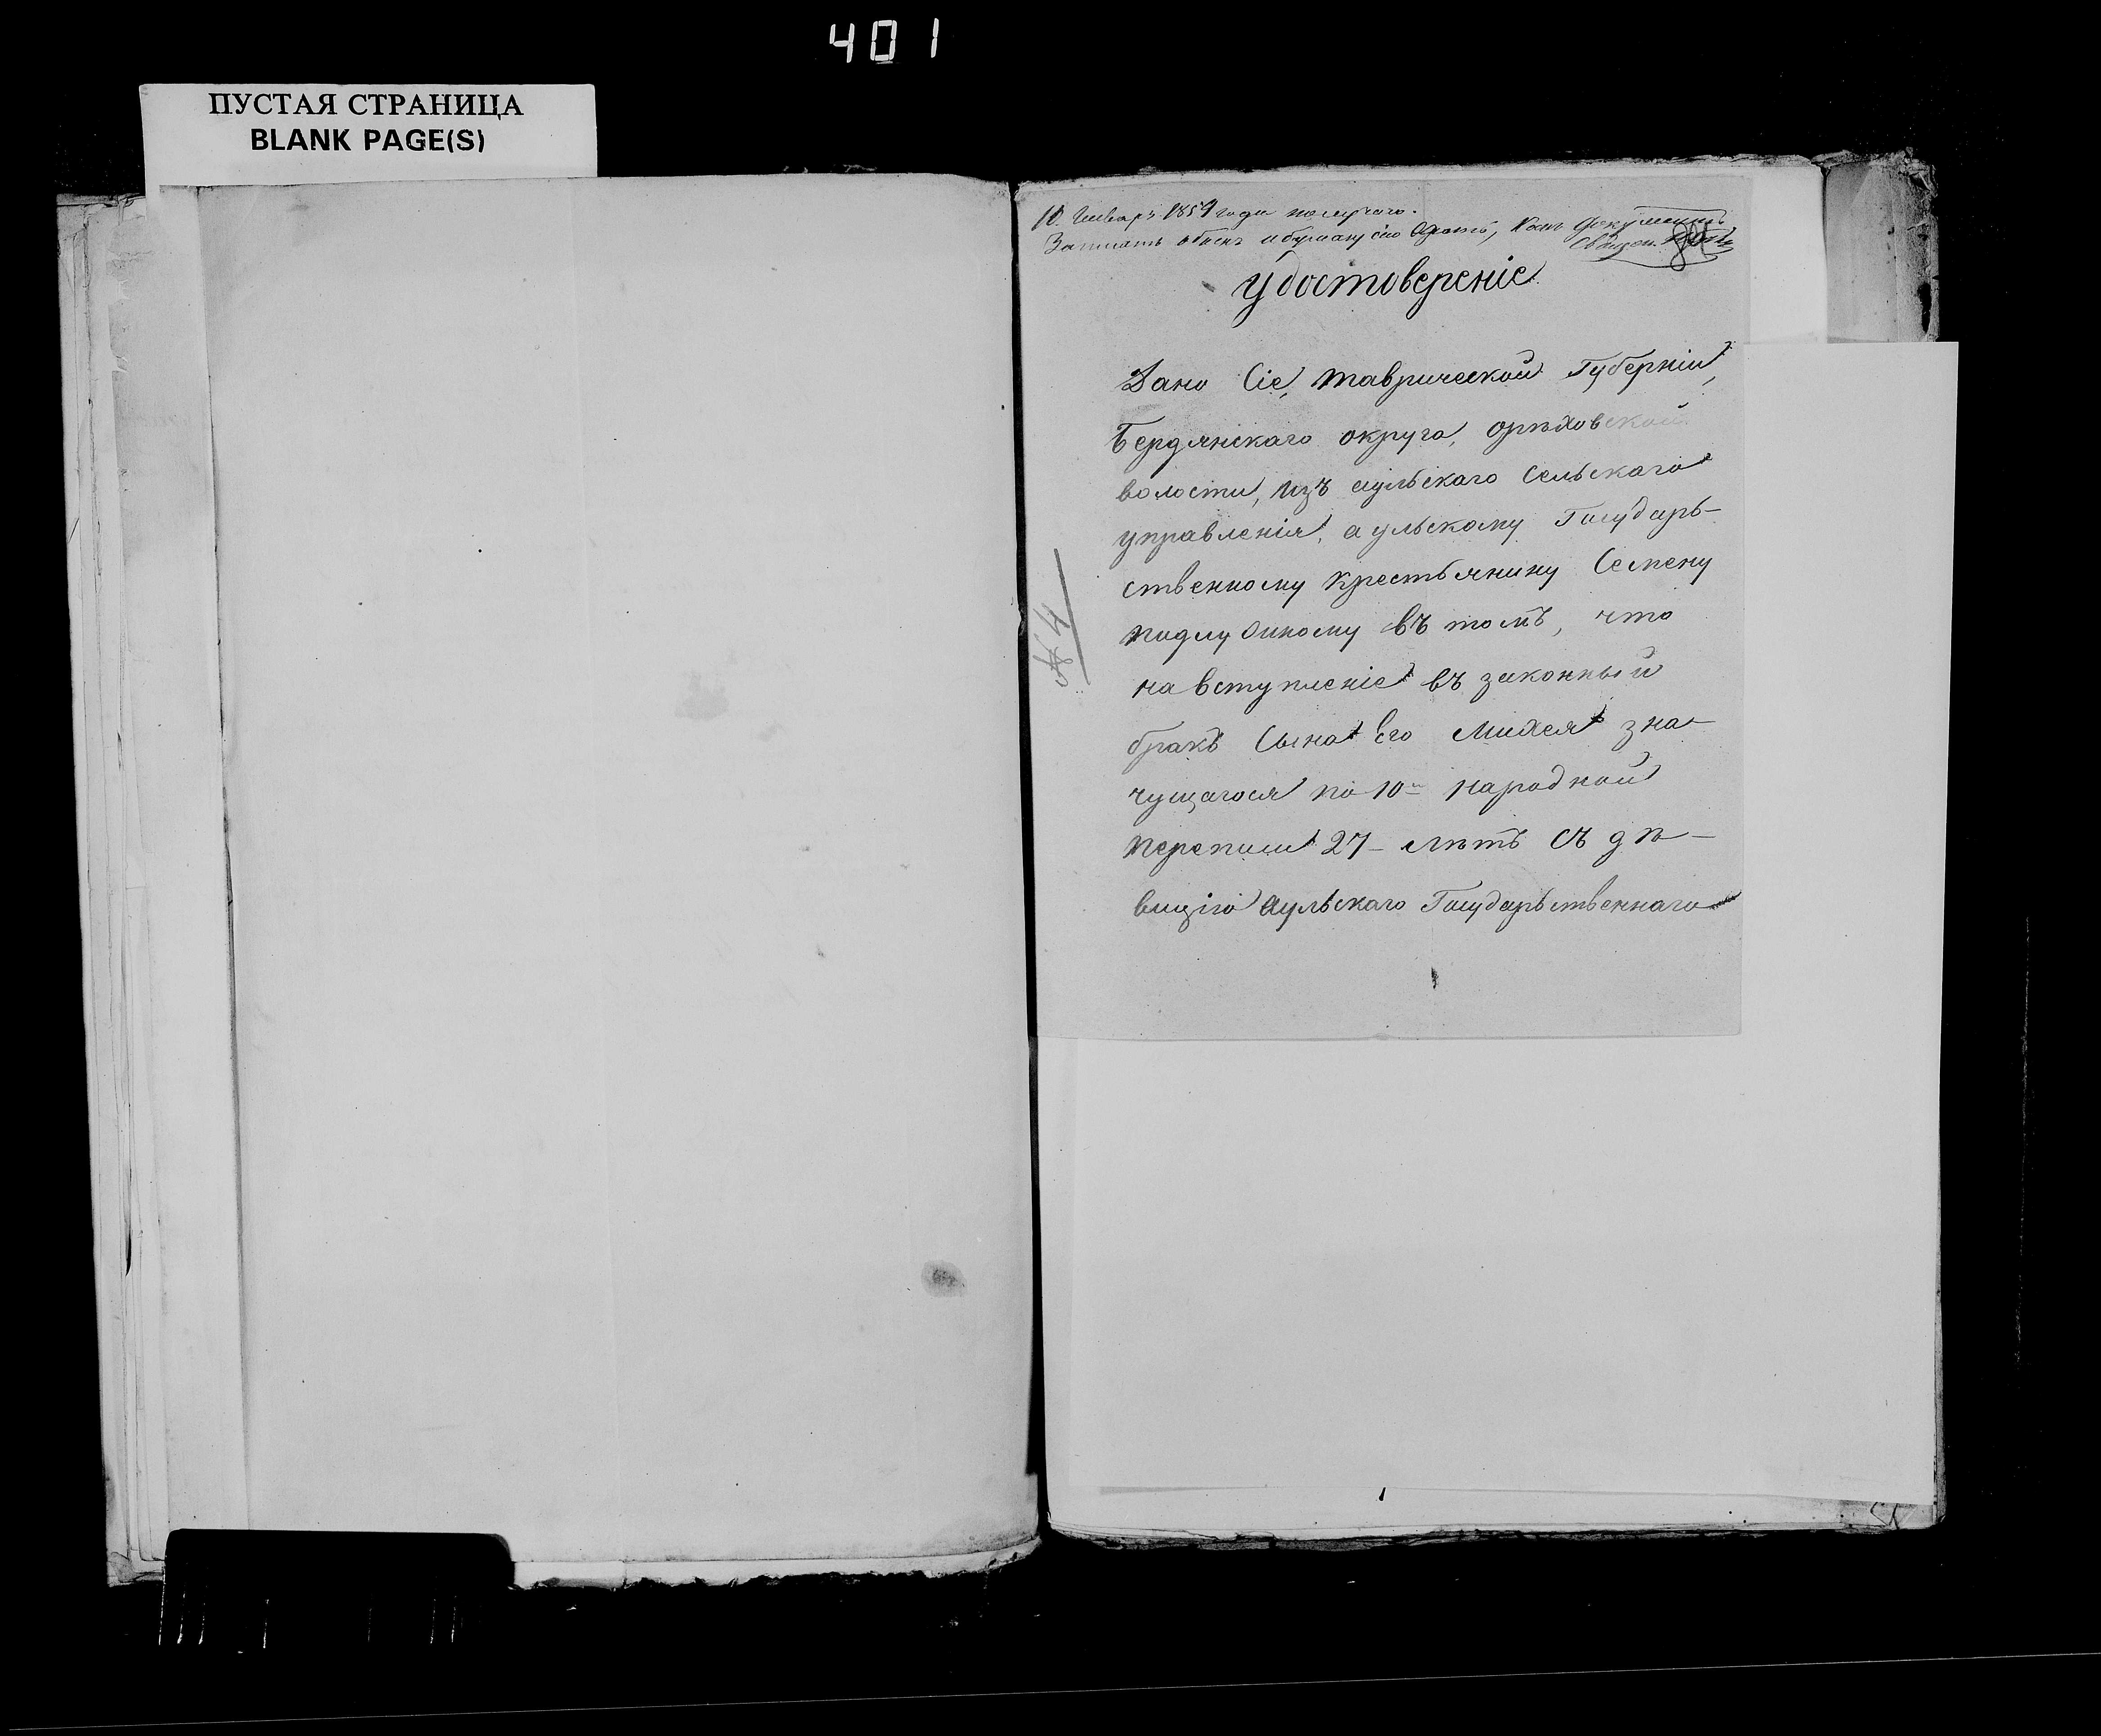 401
ПУСТАЯ СТРАНИЦА
BLANK PAGE(S)
10. Генваря 1859 года получено.
Записать обыск и бумагу сію хранить, какъ документъ
Свящ.
84
Удостовереніе
Дано Сіе, таврической Губерніи,
Бердянскаго округа, орѣховской
волости, изъ аульскаго Сельскаго
управленія, аульскому Государь-
ственному крестьянину Семену
подлу бному въ томъ, что
на вступленіе въ законный
бракъ Сына его Михея зна-
чущагося по 10й народной
переписи 27 – лѣтъ съ дѣ-
виціго аульскаго Государьственнаго
№ 4